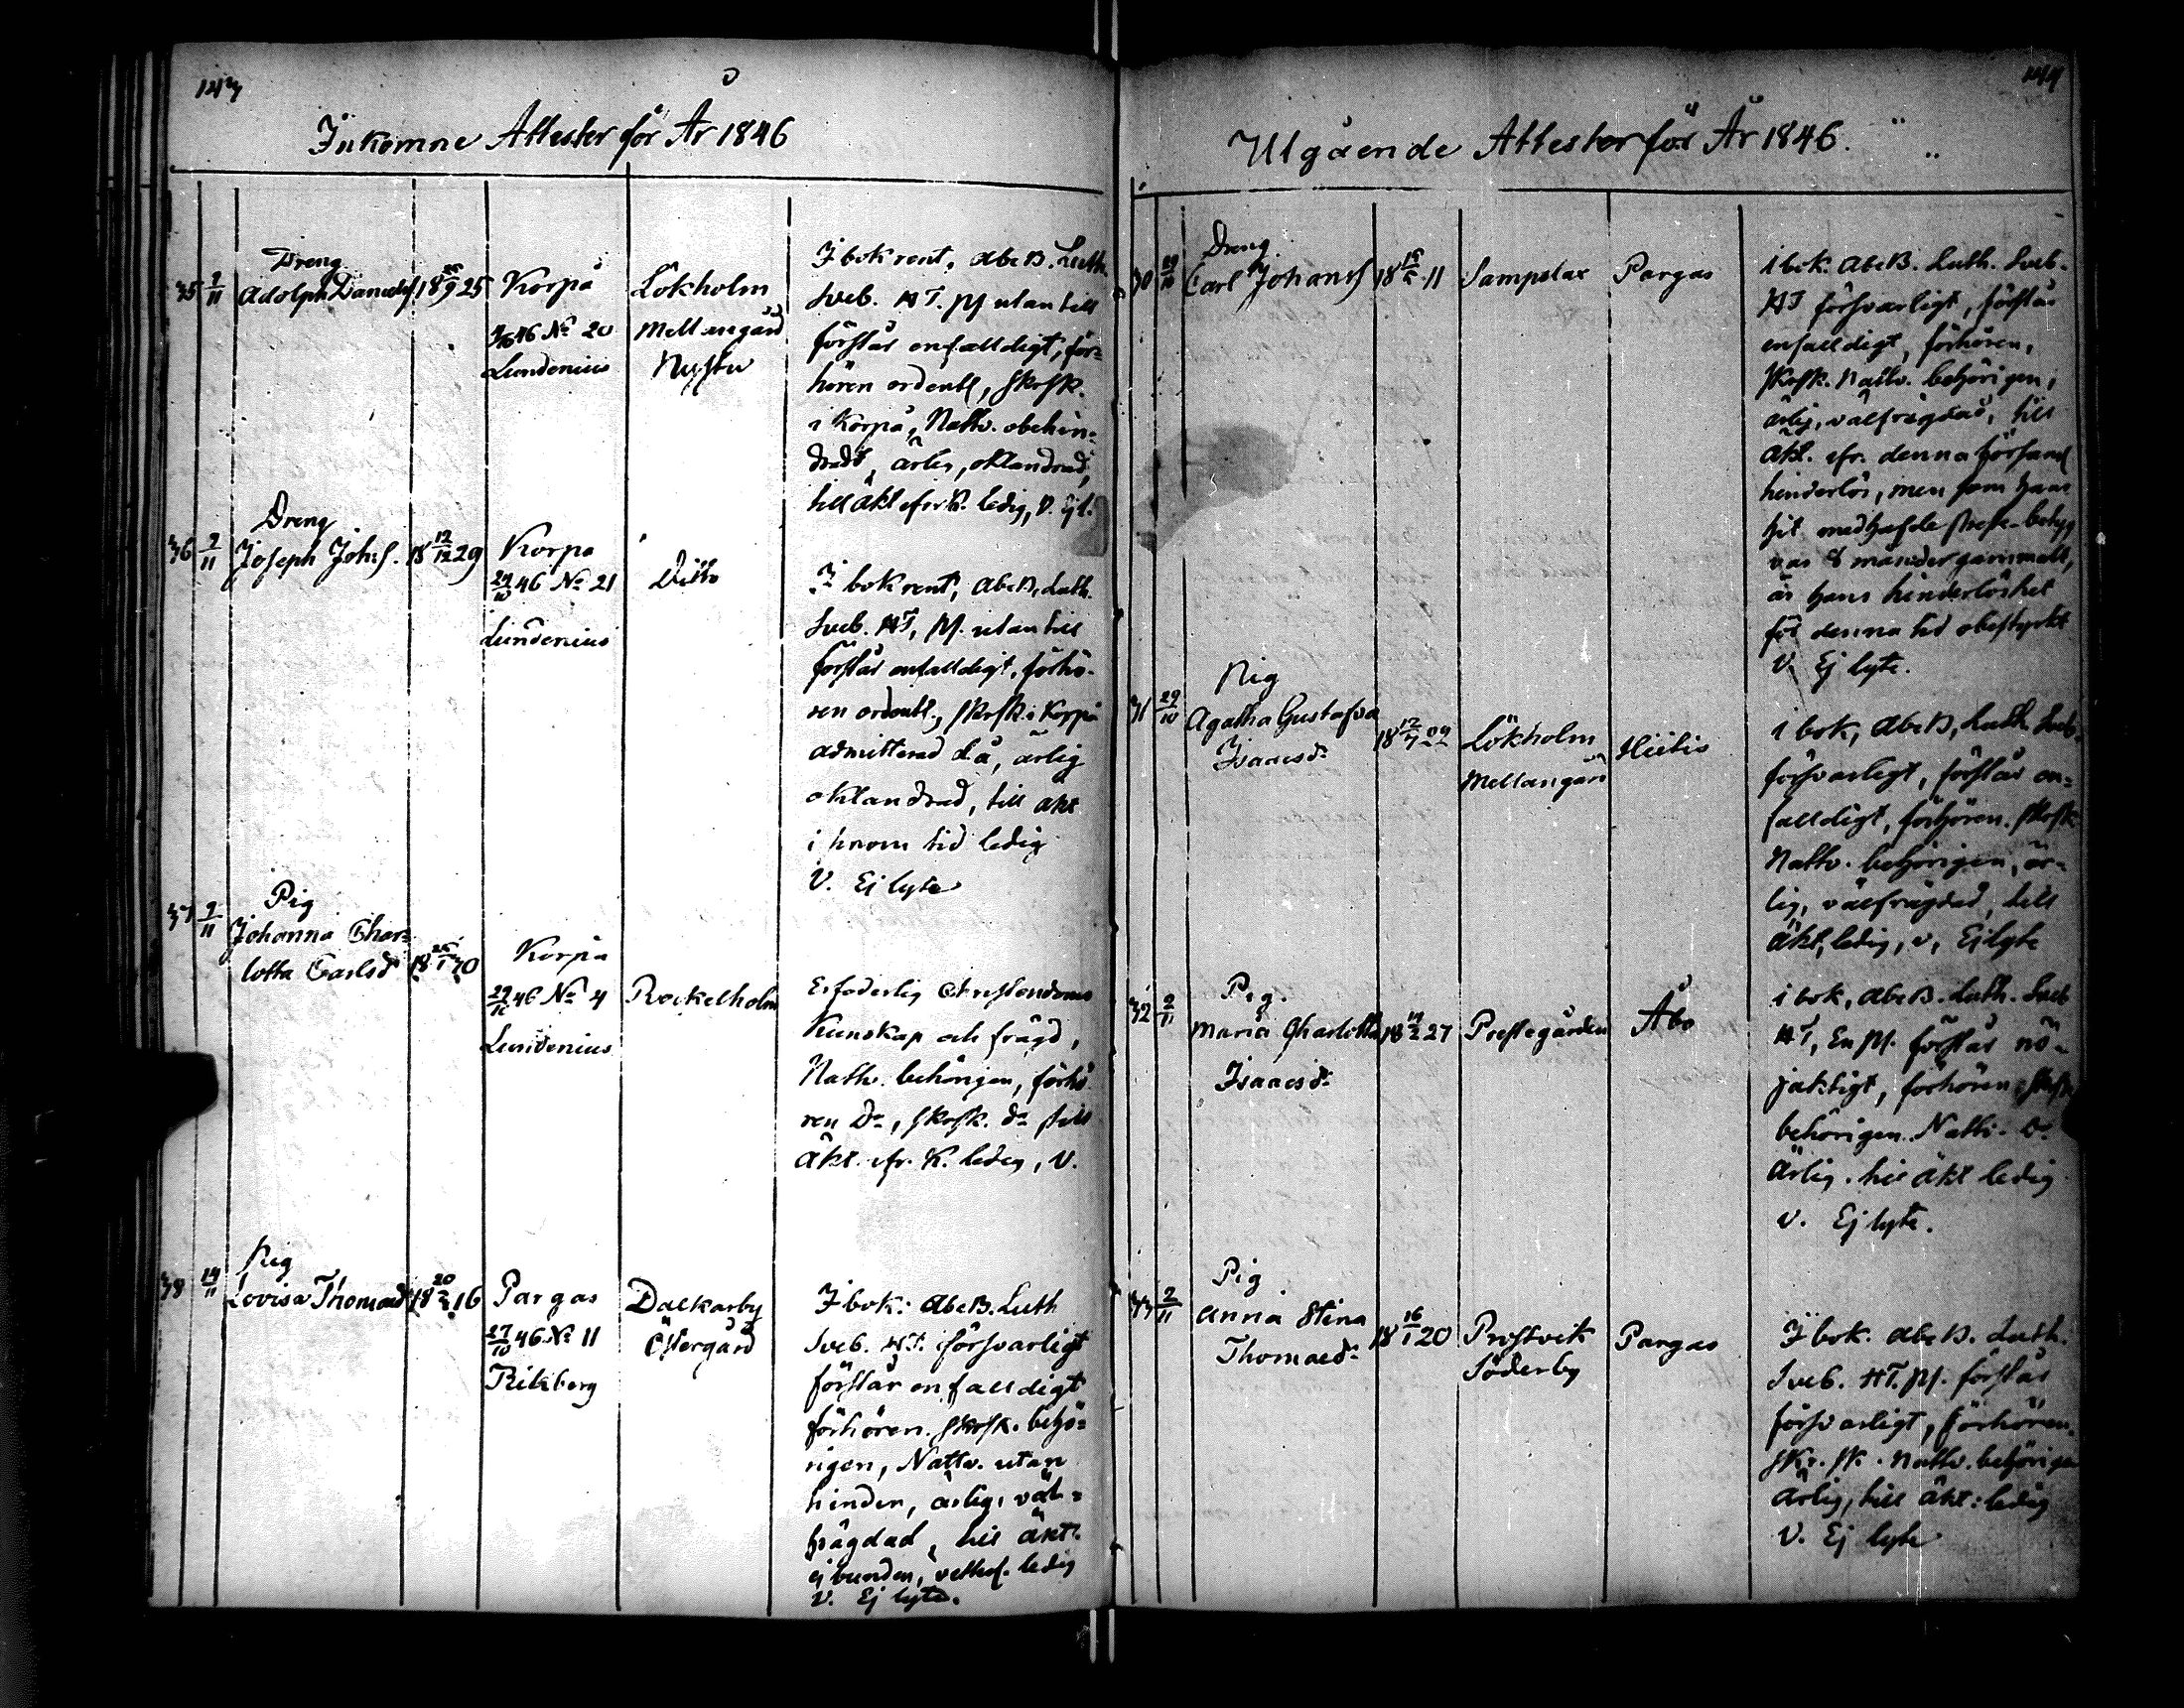 143
Inkomne Attester för År 1846
35 2/11
Dreng
Adolph Danielss.
18 25/9 25
Korpå
46 No 20
Lundenius
Lökholm
Mellangård
Nystu
I bok rent, AbcB. Luth.
Sveb. HT. Ps utan till
förstår enfalldigt, för-
hören ordentl, skrsk.
i Korpå, Nattv. obehin-
dradt, ärlig, oklandrad,
till äkt. efr K. ledig, V. Ej l.
36 2/11
Dreng
Joseph Johss.
18 12/12 29
Korpo
29/10 46 No 21
Lundenius
Ditto
I bok rent, AbcB, Luth.
Sveb. HT, Ps. utan till
förstår enfalldigt, förhö-
ren ordentl., skrsk. i Korpå
admitterad d.ä, ärlig
oklandrad, till äkt
i hvom tid ledig
V. Ej lyte
37 2/11
Pig
Johanna Char-
lotta Carlsd
18 26/1 30
Korpå
29/10 46 No 4
Lundenius
Rockelholm
Erfoderlig Christendoms
Kunskap och frägd,
Nattv. behörigen, förhö-
ren Do, skrsk. do till
äkt. efr. K. ledig, V.
38 14/11
Pig
Lovisa Thomasd
18 20/2 16
Pargas
27/10 46 No 11
Rikberg
Dalkarby
Östergård
I bok: AbcB. Luth
Sveb. HT. försvarligt
förstår enfalldigt
förhören. skrsk. behö-
rigen, Nattv. utan
hinder, ärlig, väl-
frägdad, till äkt.
ej bunden, ledig
V. Ej lyte.
144
Utgående Attester för År 1846.
30 29/10
Dreng
Carl Johanss
18 11
Sampelax
Pargas
i bok. AbcB. Luth. Sveb.
HT försvarligt, förstår
enfalldigt, förhören,
skrsk. Nattv. behörigen,
ärlig, välfrägdad, till
äkt. efr. denna församl
hinderlös, men som hans
hit medhafde betyg
var 8 månader gammalt,
är hans hinderlöshet
för denna tid obestyrkt
V. Ej lyte.
31 29/10
Pig
Agatha Gustafva
Isaacsdr
18 12/7 22
Lökholm
Mellangård
Hiitis
i bok, AbcB, Luth. Sveb.
försvarligt, förstår en-
falldigt, förhören. skrsk
Nattv. behörigen, är-
lig, välfrägdad, till
äkt, ledig, v, Ej lyte
32 2/11
Pig.
Maria Charlotta
Isaacsdr
18 14/2 27
Prestegården
Åbo
i bok, AbcB. Luth. Sveb
HT, En Ps. förstår nö-
jaktigt, förhören, skrsk
behörigen. Nattv. Do.
ärlig. till äkt ledig
v. Ej lyte.
33 2/11
Pig
Anna Stina
Thomaedr
18 16/1 20
Prostvik
Söderby
Pargas
I bok. AbcB. Luth.
Sveb. HT. Ps. förstår
försvarligt, förhören.
skr. sk. Nattv. behörigen
ärlig, till äkt: ledig
V. Ej lyte